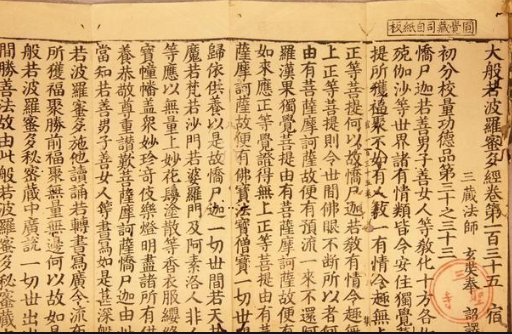 圓覺藏司自紙板
大般若波羅蜜多經卷第一百三十五 宿
三藏法師 玄奘奉 詔譯
初分校量功德品第三十之三十三
憍尸迦若善男子善女人等教化十方各
殑伽沙等世界諸有情類皆令安住獨覺菩
提所獲福聚不如有人教一有情令趣無上
正等菩提何以故憍尸迦若教有情令趣無
上正等菩提則令世間佛眼不斷所以者何
由有菩薩摩訶薩故便有預流一來不還阿
羅漢果獨覺菩提由有菩薩摩訶薩故便有
如來應正等覺證得無上正等菩提由有菩
薩摩訶薩故便有佛寶法寶僧寶一切世間
歸依供養以是故憍尸迦一切世間若天若
魔若梵若沙門若婆羅門及阿素洛人非人
等應以無量上妙花鬘塗散等香衣服纓絡
寶幢幡蓋衆妙珍奇伎樂燈明盡諸所有供
養恭敬尊重讚歎菩薩摩訶薩憍尸迦由此
當知若善男子善女人等書寫如是甚深般
若波羅蜜多施他讀誦若轉書寫廣令流布
所獲福聚勝前福聚無量無邊何以故如是
般若波羅蜜多秘密藏中廣說一切世出
間勝善法故由此般若波羅蜜多秘密藏